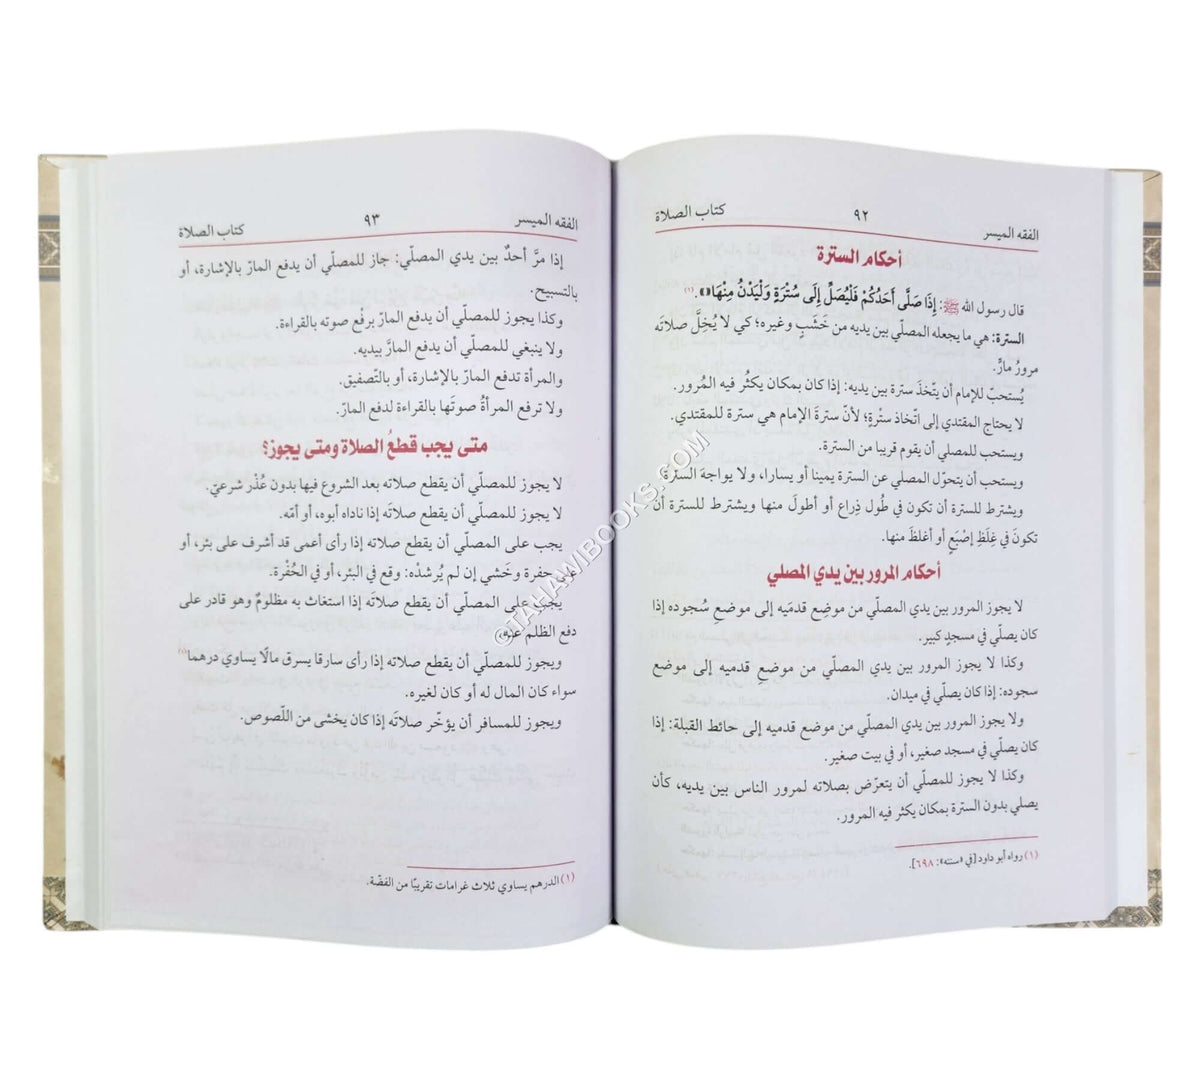 الفقه الميسر ٩٢ كتاب الصلاة
أحكام السترة
قال رسول الله ﷺ: إِذَا صَلَّى أَحَدُكُمْ فَلْيُصَلِّ إِلَى سُتْرَةٍ وَلْيَدْنُ مِنْهَا». (١)
السترة: هي ما يجعله المصلّي بين يديه من خَشَبٍ وغيره؛ كي لا يُخِلَّ صلاتَه
مرورُ مارٍّ.
يُستحبّ للإمام أن يتّخذَ سترة بين يديه: إذا كان بمكان يكثُر فيه المُرور.
لا يحتاج المقتدي إلى اتّخاذ ستْرةٍ؛ لأنّ سترةَ الإمام هي سترة للمقتدي.
ويستحب للمصلي أن يقوم قريبا من السترة.
ويستحب أن يتحوّل المصلي عن السترة يمينا أو يسارا، ولا يواجهَ السترةَ
ويشترط للسترة أن تكون في طُول ذِراع أو أطولَ منها ويشترط للسترة أن
تكونَ في غِلَظِ إصْبَعٍ أو أغلظَ منها.
أحكام المرور بين يدي المصلي
لا يجوز المرور بين يدي المصلّي من موضِع قدمَيه إلى موضعِ سُجوده إذا
كان يصلّي في مسجدٍ كبير.
وكذا لا يجوز المرور بين يدي المصلّي من موضعِ قدميه إلى موضع
سجوده: إذا كان يصلّي في ميدان.
ولا يجوز المرور بين يدي المصلّي من موضع قدميه إلى حائط القبلة: إذا
كان يصلّي في مسجد صغير، أو في بيت صغير.
وكذا لا يجوز للمصلّي أن يتعرّض بصلاته لمرور الناس بين يديه، كأن
يصلي بدون السترة بمكان يكثر فيه المرور.
(١) رواه أبو داود [في «سننه»: ٦٩٨].
الفقه الميسر ٩٣ كتاب الصلاة
إذا مرَّ أحدٌ بين يدي المصلّي: جاز للمصلّي أن يدفع المارّ بالإشارة، أو
بالتسبيح.
وكذا يجوز للمصلّي أن يدفع المارّ برفْع صوته بالقراءة.
ولا ينبغي للمصلّي أن يدفع المارَّ بيديه.
والمرأة تدفع المارّ بالإشارة، أو بالتّصفيق.
ولا ترفع المرأةُ صوتَها بالقراءة لدفع المارّ.
متى يجب قطعُ الصلاة ومتى يجوز؟
لا يجوز للمصلّي أن يقطع صلاته بعد الشروع فيها بدون عُذْر شرعيّ.
لا يجوز للمصلّي أن يقطع صلاتَه إذا ناداه أبوه، أو أمّه.
يجب على المصلّي أن يقطع صلاته إذا رأى أعمى قد أشرف على بئر، أو
على حفرة وخَشي إن لم يُرشدْه: وقع في البئر، أو في الحُفْرة.
يجب على المصلّي أن يقطع صلاتَه إذا استغاث به مظلومٌ وهو قادر على
دفع الظلم عنه.
ويجوز للمصلّي أن يقطع صلاته إذا رأى سارقا يسرق مالًا يساوي درهما(١)
سواء كان المال له أو كان لغيره.
ويجوز للمسافر أن يؤخّر صلاتَه إذا كان يخشى من اللّصوص.
(١) الدرهم يساوي ثلاث غرامات تقريبًا من الفضّة.
©TAHAWIBOOKS.COM